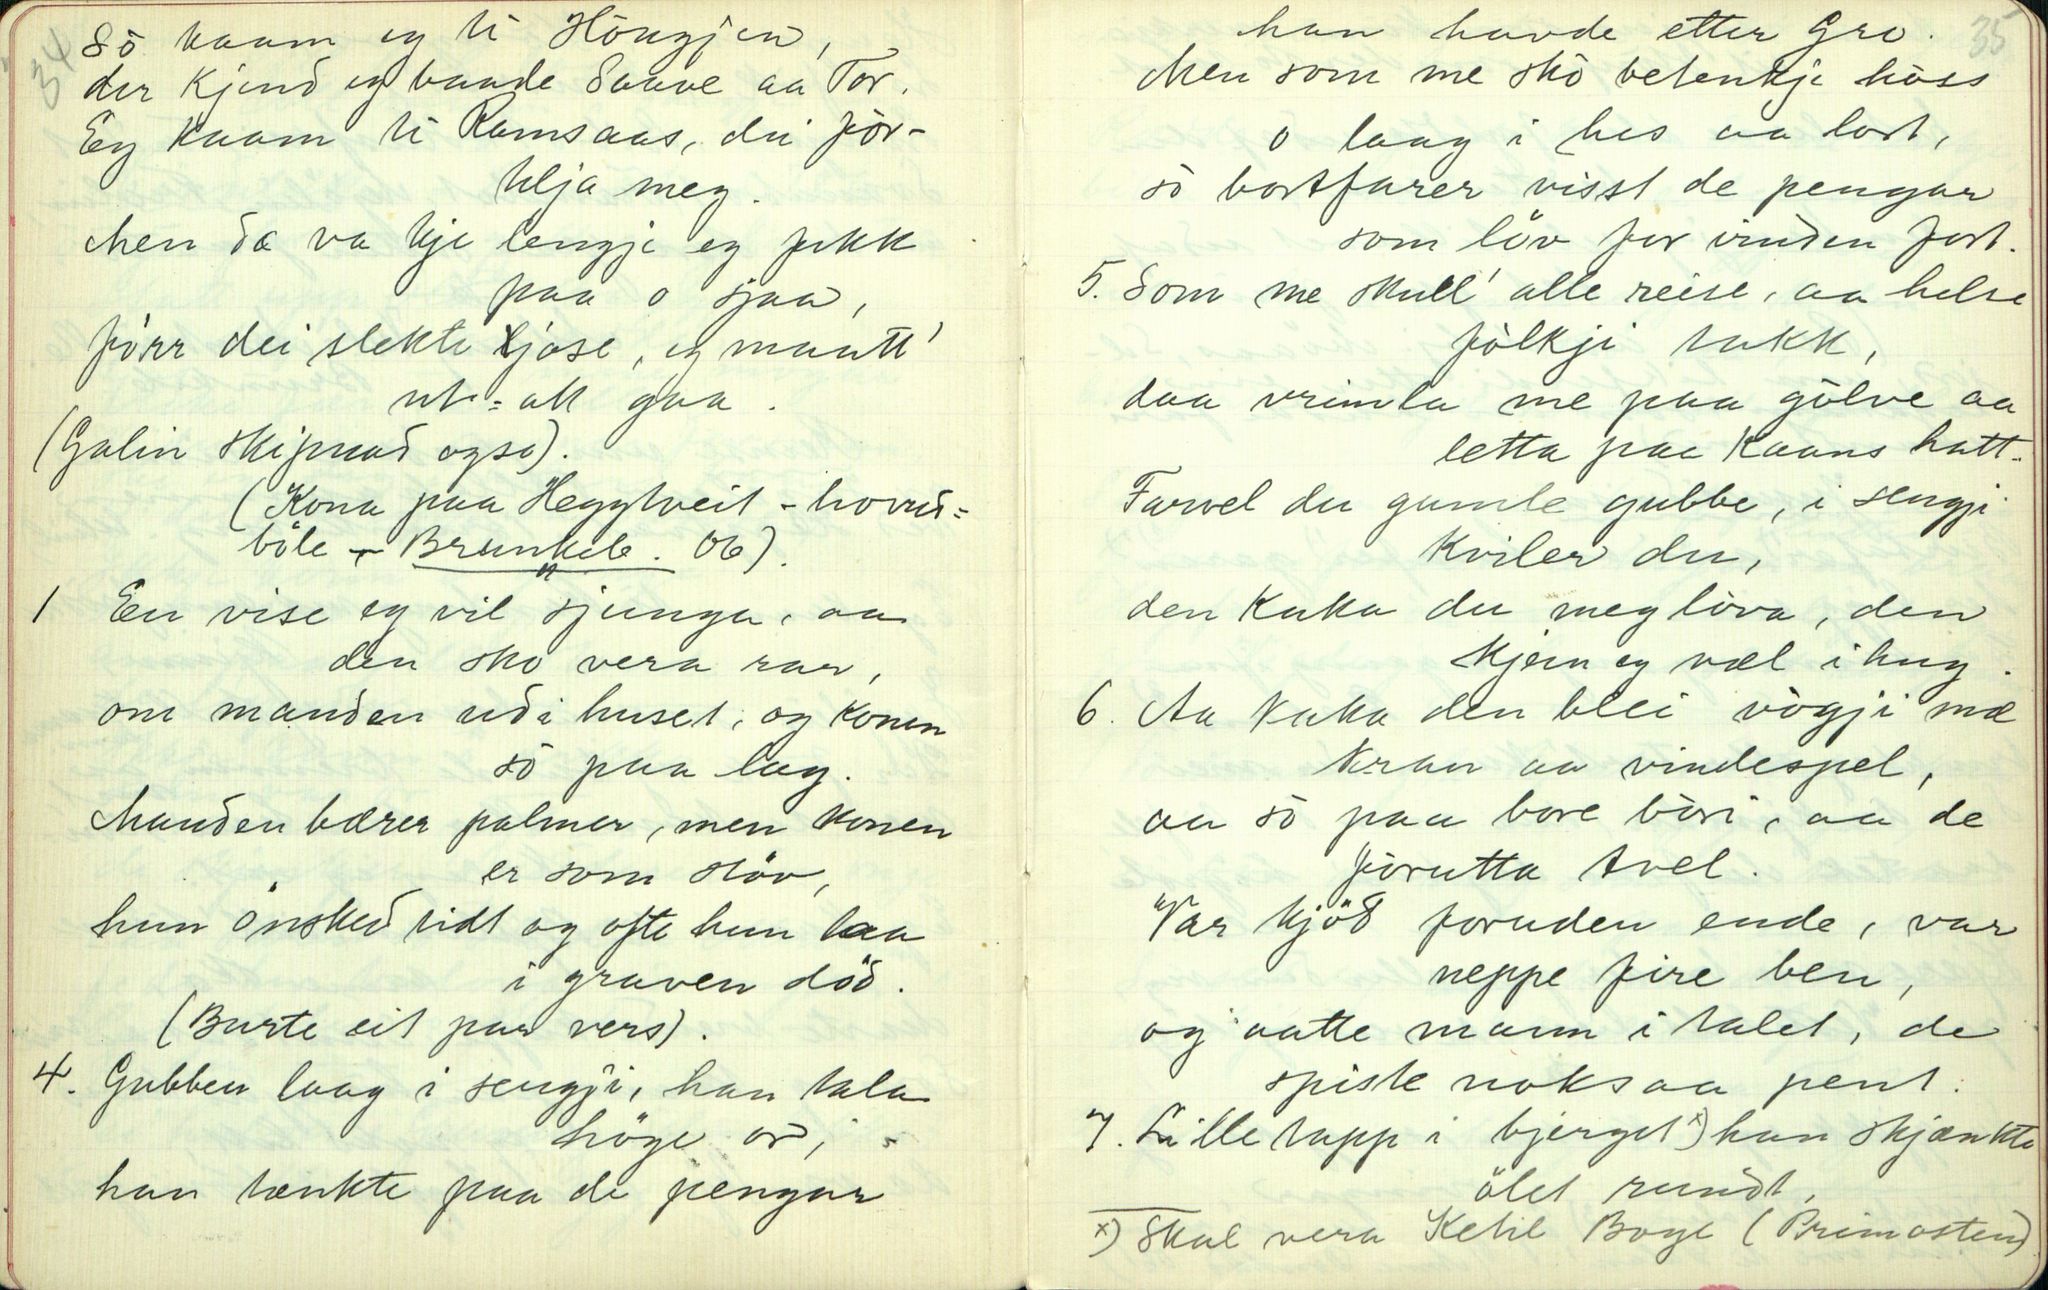 34
Sö kaam eg ti Höugjen,
der kjend eg baade Saave aa Tor.
Eg kaam ti Ramsaas, dei för-
telja meg.
Men dæ va kje lengje eg fekk
paa o sjaa,
förr dei slekte ljose, eg maatt'
ut=att gaa.
(Galin skipnad ogso).
(Kona paa Heggtveit - hovud=
böle - Brunkeb. 06).
1 En vise eg vil sjunga, aa
den sko vera rar,
om manden udi huset, og konen
sö paa lag.
Manden bærer palmer, men konen
er som stöv,
hun önsked tidt og ofte hun laa
i graven död.
(Burte eit par vers).
4. Gubben laag i sengji, han tala
höge or, -
han tænkte paa de pengar
35
han havde etter Gro.
Men som me sko betenkje höss
o laag i hes aa lort,
sö bortfarer visst de pengar
som löv for vinden fort.
5. Som me skull' alle reise, aa helse
fölkji takk,
daa vrimla me paa gölve aa
letta paa kaans hatt.
Farvel du gamle gubbe, i sengji
kviler du,
den kaka du meg löva, den
kjem eg væl i hug.
6. Aa kaka den blei vögji mæ
kran aa vindespel,
aa sö paa bore böri, aa de
förutta tvel.
Var kjöd foruden ende, var
neppe fire ben,
og aatte mann i talet, de
spiste noksaa pent.
7. Lille tapp i bjerget x) han skjænkte
ölet rundt,
x) Skal vera Ketil Boge (Primosten)